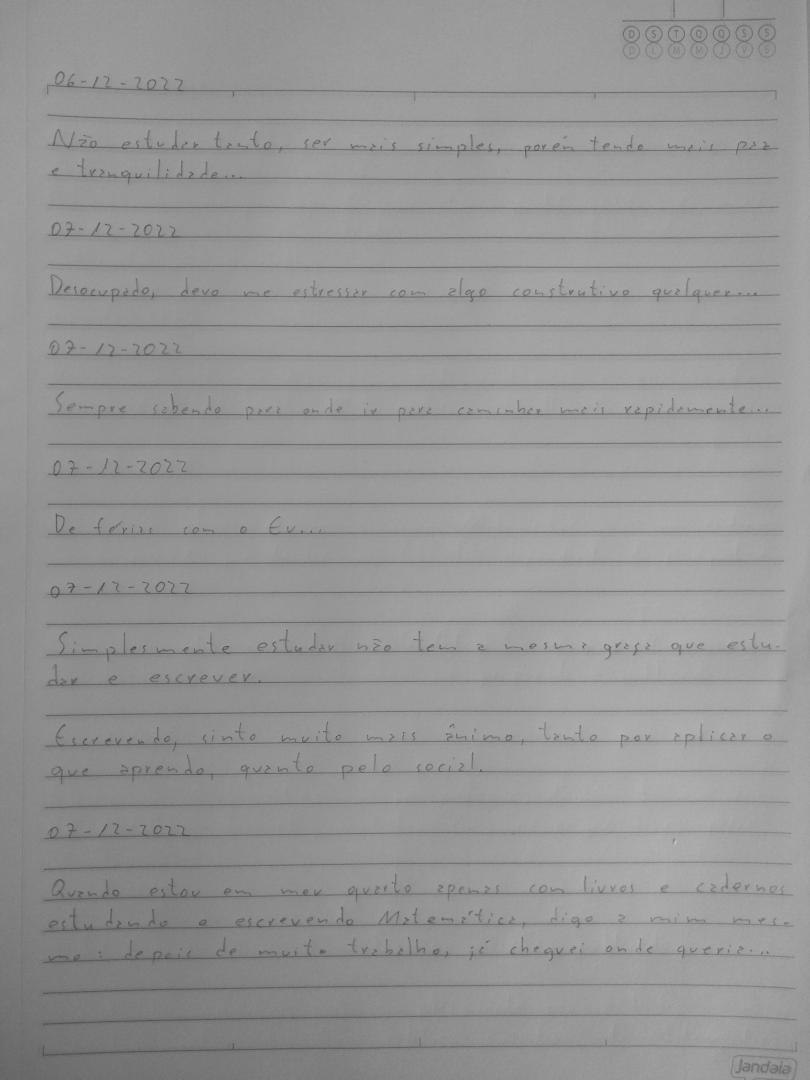 D S T Q Q S S
D L M M J V S
06-12-2022
Não estudar tanto, ser mais simples, porém tendo mais paz
e tranquilidade...
07-12-2022
Desocupado, devo me estressar com algo construtivo qualquer...
07-12-2022
Sempre sabendo para onde ir para caminhar mais rapidamente...
07-12-2022
De férias com o Eu...
07-12-2022
Simplesmente estudar não tem a mesma graça que estu-
dar e escrever.
Escrevendo, sinto muito mais ânimo, tanto por aplicar o
que aprendo, quanto pelo social.
07-12-2022
Quando estou em meu quarto apenas com livros e cadernos
estudando e escrevendo Matemática, digo a mim mes-
mo: depois de muito trabalho, já cheguei onde queria...
Jandaia